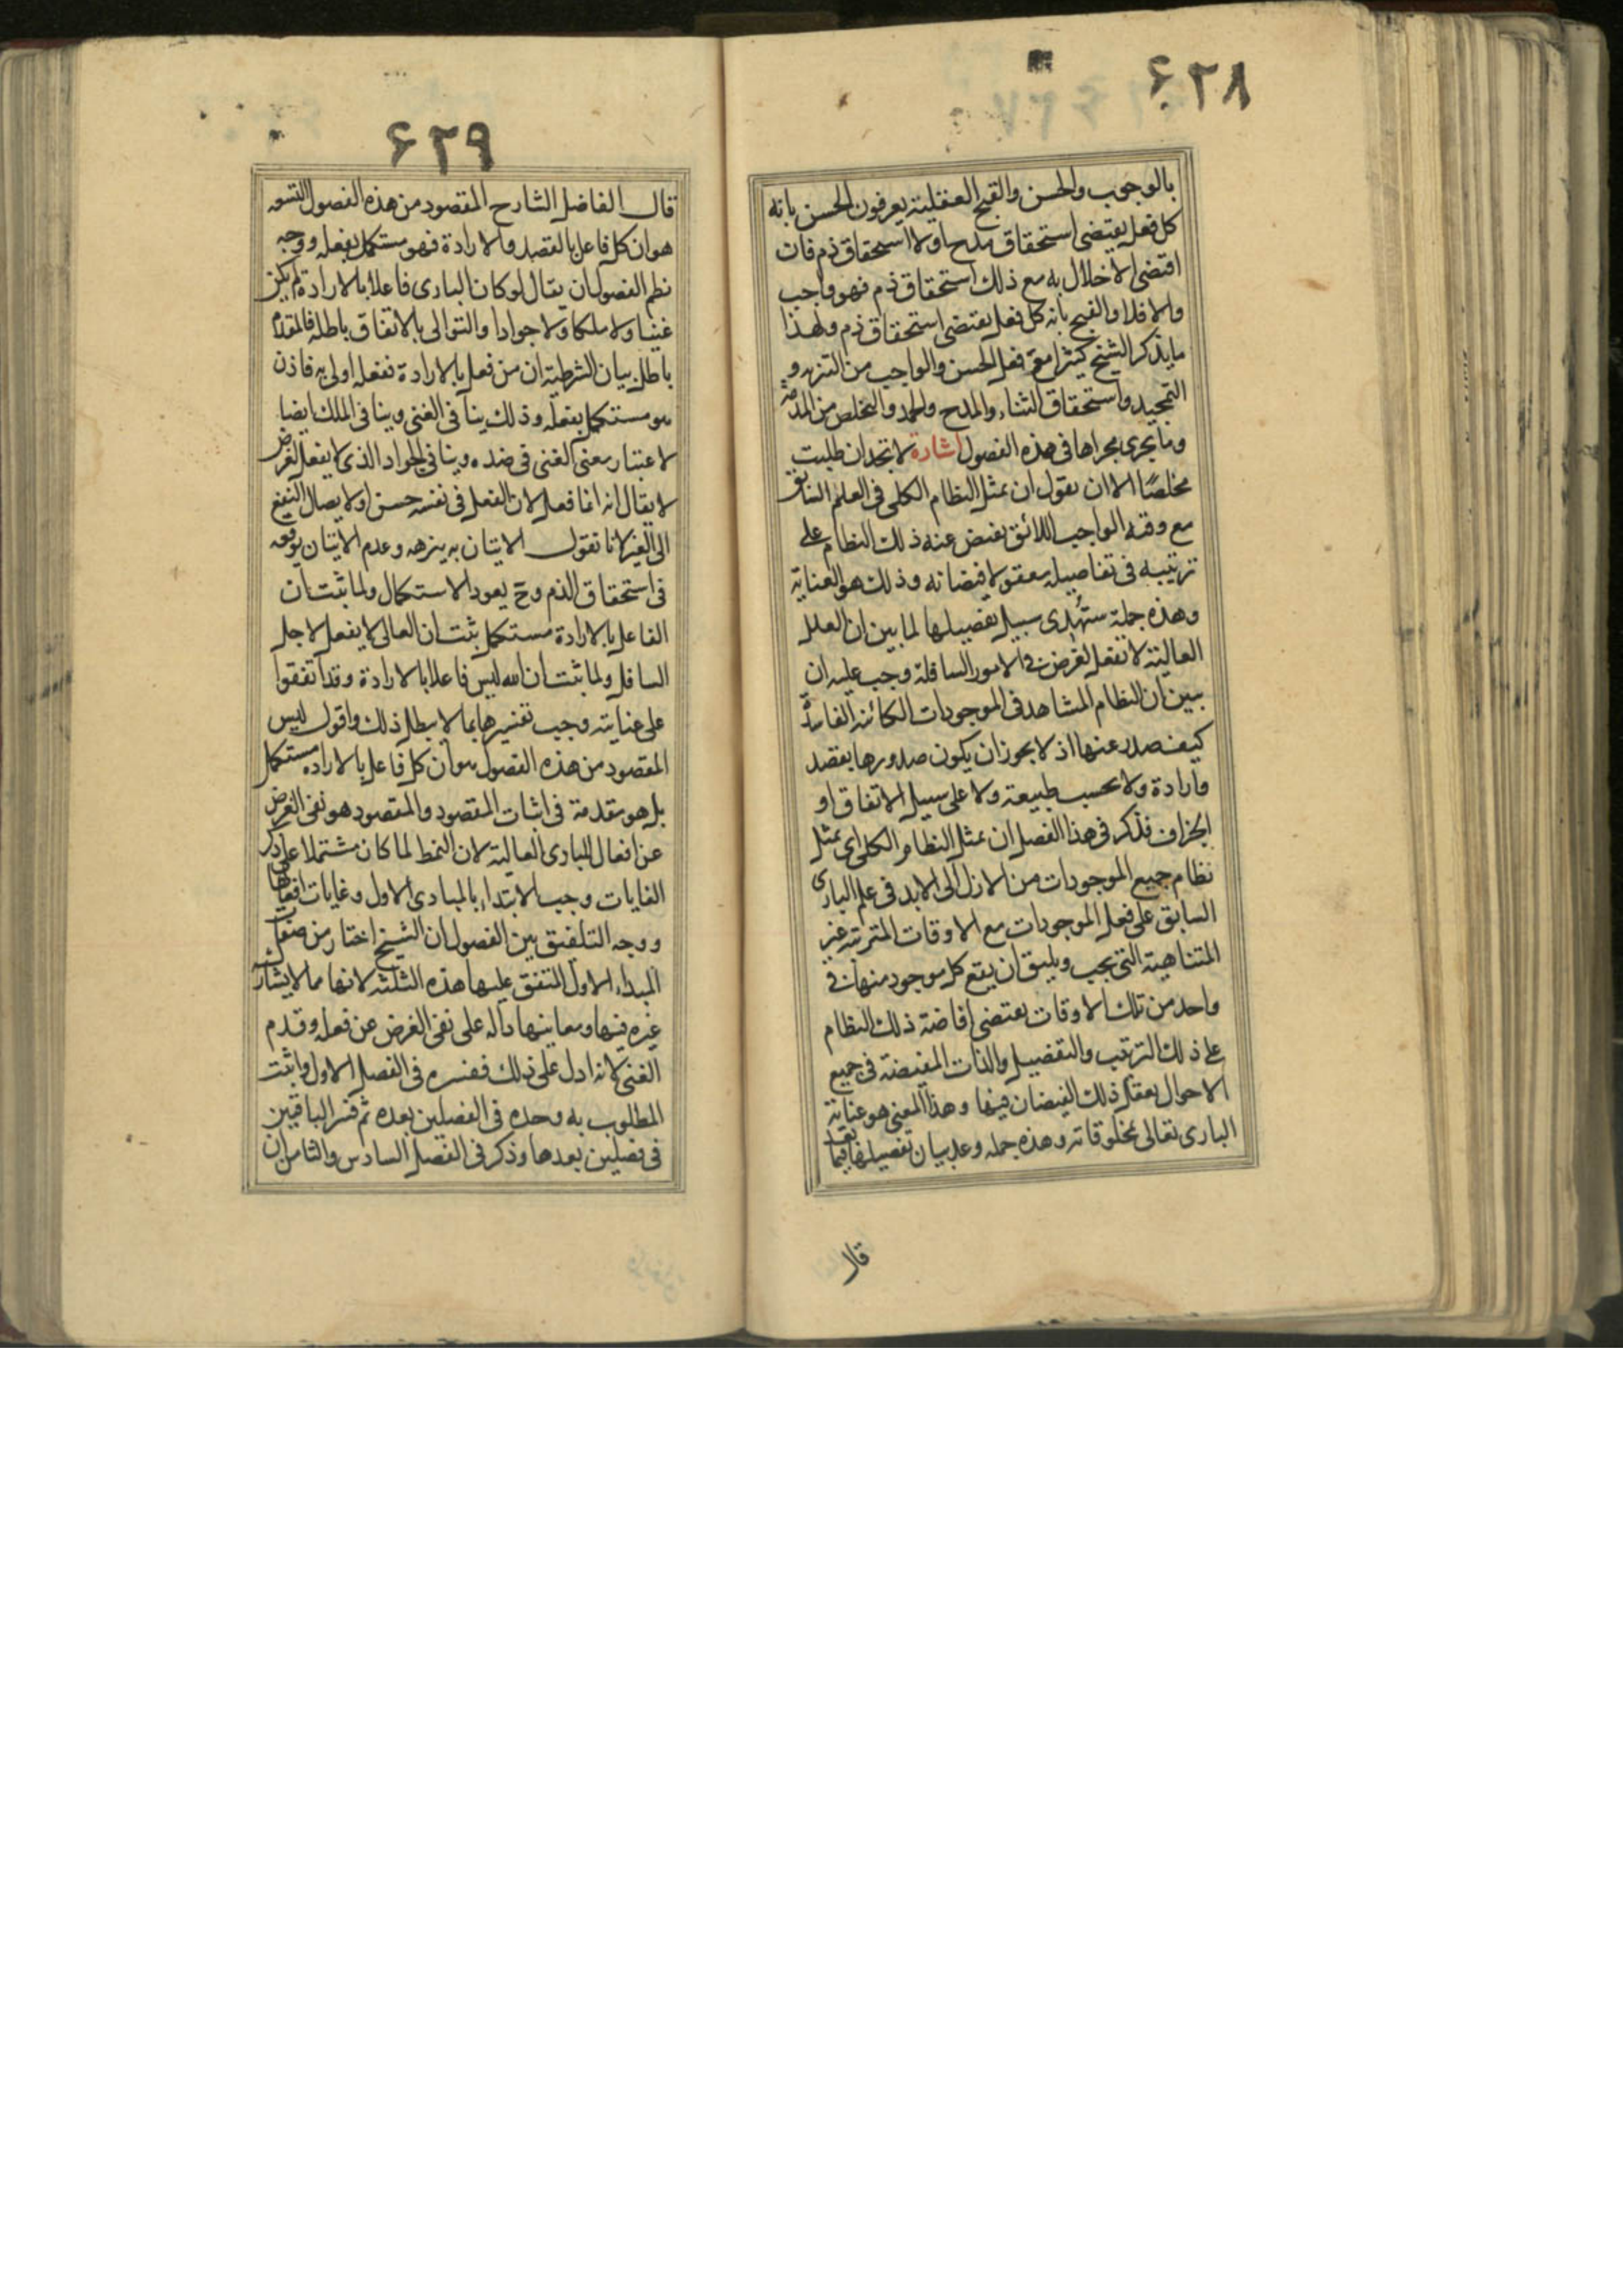 ۶۲۸
بالوجوب والحسن والقبح العقلية يعرفون الحسن بانه
كل فعل يقتضى استحقاق مدح اولا استحقاق ذم فان
اقتضى الاخلال به مع ذلك استحقاق ذم فهو واجب
والا فلا والقبح بانه كل فعل يقتضى استحقاق ذم ولهذا
ما يذكر الشيخ كثيرا مع فعل الحسن والواجب من التنزيه و
التمجيد واستحقاق الثناء والمدح والحمد والتخلص من المذمة
وما يجرى مجراها فى هذه الفصول اشارة لا تجد ان طلبت
مخلصًا الا ان تقول ان تمثل النظام الكلى فى العلم السابق
مع وقته الواجب اللائق يفيض عنه ذلك النظام على
ترتيبه فى تفاصيله معقولا فيضانه وذلك هو العناية
وهذه جملة ستُهدى سبيل تفصيلها لما بين ان العلل
العالية لا تفعل لغرض فى الامور السافلة وجب عليه ان
يبين ان النظام المشاهد فى الموجودات الكائنة الفاسدة
كيف صدر عنها اذ لا يجوز ان يكون صدورها بقصد
وارادة ولا بحسب طبيعة ولا على سبيل الاتفاق او
الجزاف فذكر فى هذا الفصل ان تمثل النظام الكلى اى تمثل
نظام جميع الموجودات من الازل الى الابد فى علم البارى
السابق على فعل الموجودات مع الاوقات المترتبة غير
المتناهية التى يجب ويليق ان يقع كل موجود منها فى
واحد من تلك الاوقات يقتضى افاضة ذلك النظام
على ذلك الترتيب والتفصيل والذات المفيضة فى جميع
الاحوال يعقل ذلك الفيضان فيها وهذا المعنى هو عناية
البارى تعالى بمخلوقاته وهذه جمله وعد بيان تفصيلها فيما بعد
قال
۶۲۹
قال الفاضل الشارح المقصود من هذه الفصول التسعه
هو ان كل فاعل بالقصد والارادة فهو مستكمل بفعله ووجه
نظم الفصول ان يقال لو كان البارى فاعلا بالارادة لم يكن
غنيا ولا ملكا ولا جوادا والتوالى بالاتفاق باطله فالمقدم
باطل بيان الشرطية ان من فعل بالارادة ففعله اولى به فاذن
هو مستكمل بفعله وذلك ينافى الغنى وينافى الملك ايضا
لاعتبار معنى الغنى فى ضده وينافى الجواد الذى لا يفعل لغرض
لا يقال انه انما فعل لان الفعل فى نفسه حسن او لايصال النفع
الى الغير لانا نقول الاتيان به ينزهه وعدم الاتيان يوقعه
فى استحقاق الذم وح يعود الاستكمال ولما ثبت ان
الفاعل بالارادة مستكمل ثبت ان العالى لا يفعل لاجل
السافل ولما ثبت ان الله ليس فاعلا بالارادة وقد اتفقوا
على عنايته وجب تفسيرها بما لا يبطل ذلك واقول ليس
المقصود من هذه الفصول هو ان كل فاعل بالاراده مستكمل
بل هو مقدمة فى اثبات المقصود والمقصود هو نفى الغرض
عن افعال المبادى العالية لان النمط لما كان مشتملا على ذكر
الغايات وجب الابتداء بالمبادى الاول وغايات افعالها
ووجه التلفيق بين الفصول ان الشيخ اختار من صفات
المبداء الاول المتفق عليها هذه الثلثة لانها مما لا يشاركه
غيره فيها ومعانيها داله على نفى الغرض عن فعله وقدم
الغنى لانه ادل على ذلك ففسره فى الفصل الاول واثبت
المطلوب به وحده فى الفصلين بعده ثم فسر الباقيين
فى فصلين بعدها وذكر فى الفصل السادس والثامن ان